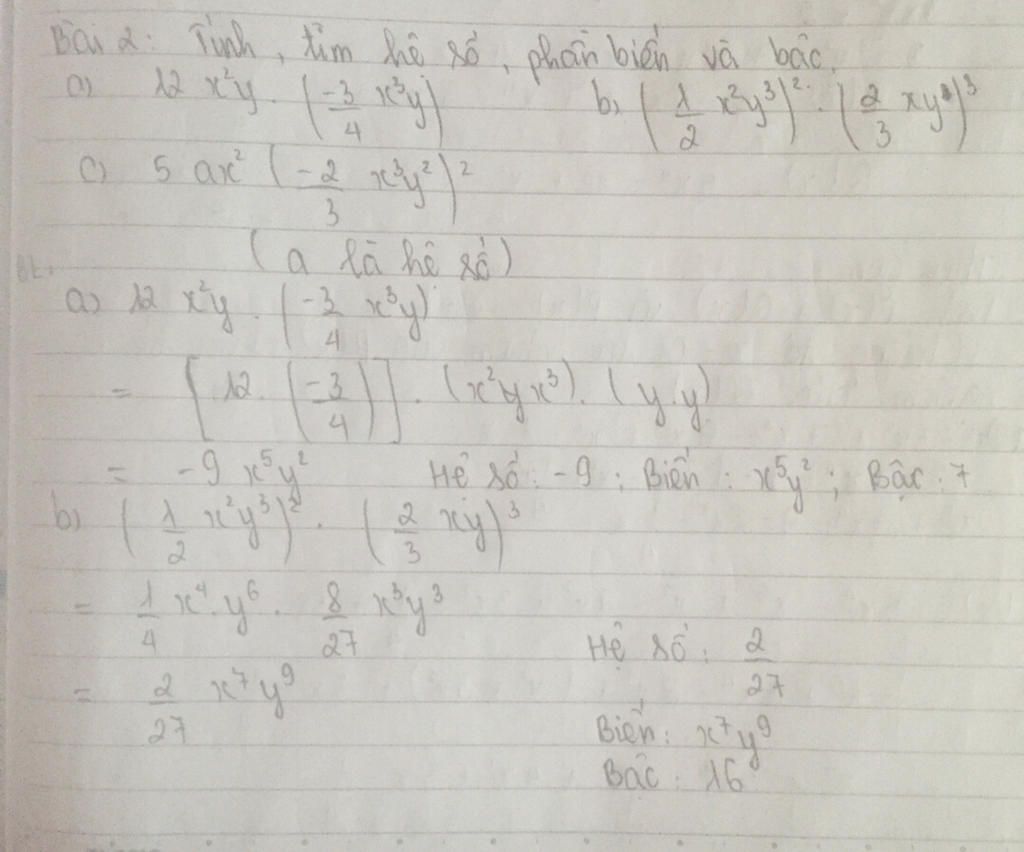 Bài 2: Tính, tìm hệ số, phần biến và bậc.
a) 12 x²y . (-3/4 x³y) b) (1/2 x²y³)² . (2/3 xy)³
c) 5 ax² (-2/3 x³y²)²
(a là hệ số)
a) 12 x²y . (-3/4 x³y)
= [12 . (-3/4)] . (x² . x³) . (y . y)
= -9 x⁵y² Hệ số: -9 ; Biến : x⁵y² ; Bậc : 7
b) (1/2 x²y³)² . (2/3 xy)³
= 1/4 x⁴ . y⁶ . 8/27 x³y³
Hệ số : 2/27
= 2/27 x⁷y⁹
Biến : x⁷y⁹
Bậc : 16